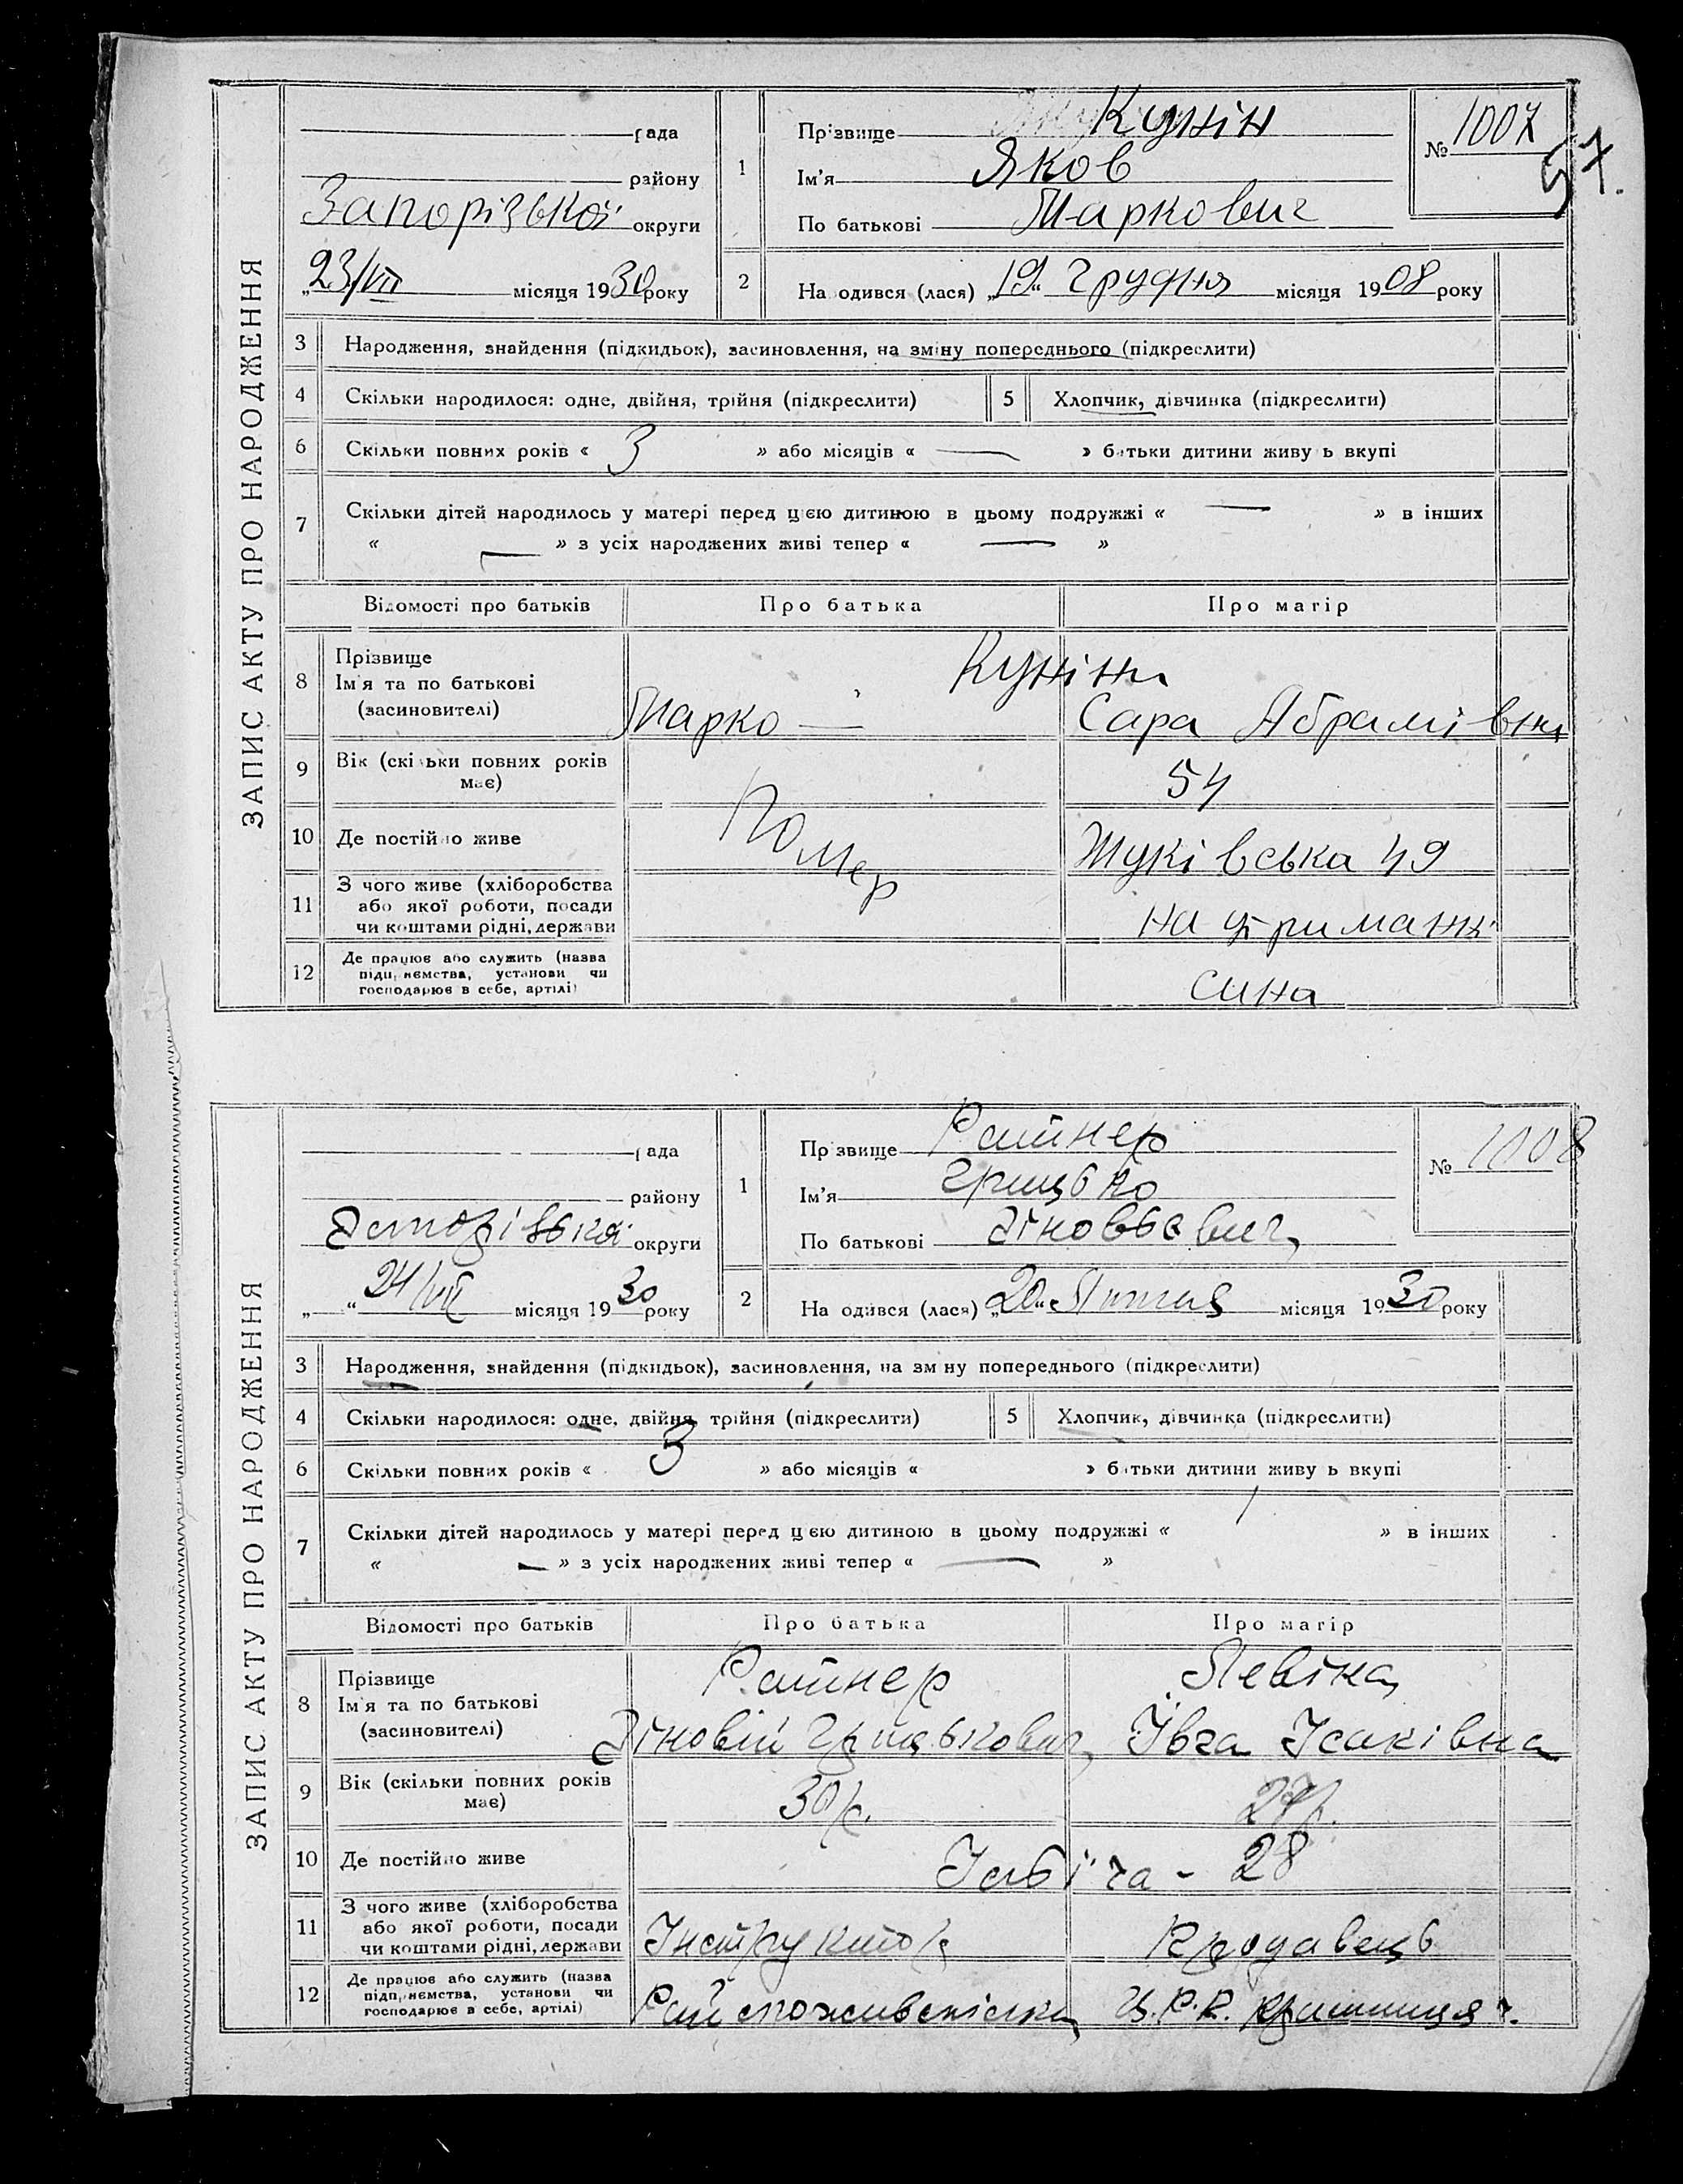 ЗАПИС АКТУ ПРО НАРОДЖЕННЯ
рада
району
Запорізької округи
„23/VII місяця 1930 року
1
Прізвище Кунін
Ім'я Яков
По батькові Маркович
№ 1007
57.
2
На одився (лася) „19“ Грудня місяця 1908 року
3 Народження, знайдення (підкидьок), засиновлення, на зміну попереднього (підкреслити)
4 Скільки народилося: одне, двійня, трійня (підкреслити)
5 Хлопчик, дівчинка (підкреслити)
6 Скільки повних років « 3 » або місяців « — » батьки дитини живу ь вкупі
7 Скільки дітей народилось у матері перед цією дитиною в цьому подружжі « — » в інших
« — » з усіх народжених живі тепер « — »
Відомості про батьків Про батька Про матір
8 Прізвище
Ім'я та по батькові
(засиновителі)
Куніни
Марко — Сара Абрамівна
9 Вік (скільки повних років
має)
54
10 Де постійно живе
Помер
Жуківська 49
11 З чого живе (хліборобства
або якої роботи, посади
чи коштами рідні, держави
на утриманні
12 Де працює або служить (назва
підприємства, установи чи
господарює в себе, артілі)
сина
ЗАПИС АКТУ ПРО НАРОДЖЕННЯ
рада
району
Запорізької округи
„ “ 24/VII місяця 1930 року
1
Пр звище Райнер
Ім'я Грицько
По батькові Зіновьевич
№ 1008
2
На одився (лася) „20“ Липня місяця 1930 року
3 Народження, знайдення (підкидьок), засиновлення, на зм ну попереднього (підкреслити)
4 Скільки народилося: одне, двійня, трійня (підкреслити)
5 Хлопчик, дівчинка (підкреслити)
6 Скільки повних років « 3 » або місяців « » батьки дитини живу ь вкупі
7 Скільки дітей народилось у матері перед цією дитиною в цьому подружжі « / » в інших
« — » з усіх народжених живі тепер « — »
Відомості про батьків Про батька Про матір
8 Прізвище
Ім'я та по батькові
(засиновителі)
Райнер Левіна
Зіновій Грицькович Ївга Ісаківна
9 Вік (скільки повних років
має)
30 р. 27 р.
10 Де постійно живе
28
11 З чого живе (хліборобства
або якої роботи, посади
чи коштами рідні, держави
Інструктор Продавець
12 Де працює або служить (назва
підприємства, установи чи
господарює в себе, артілі)
Райспоживспілки Ц.Р.К.